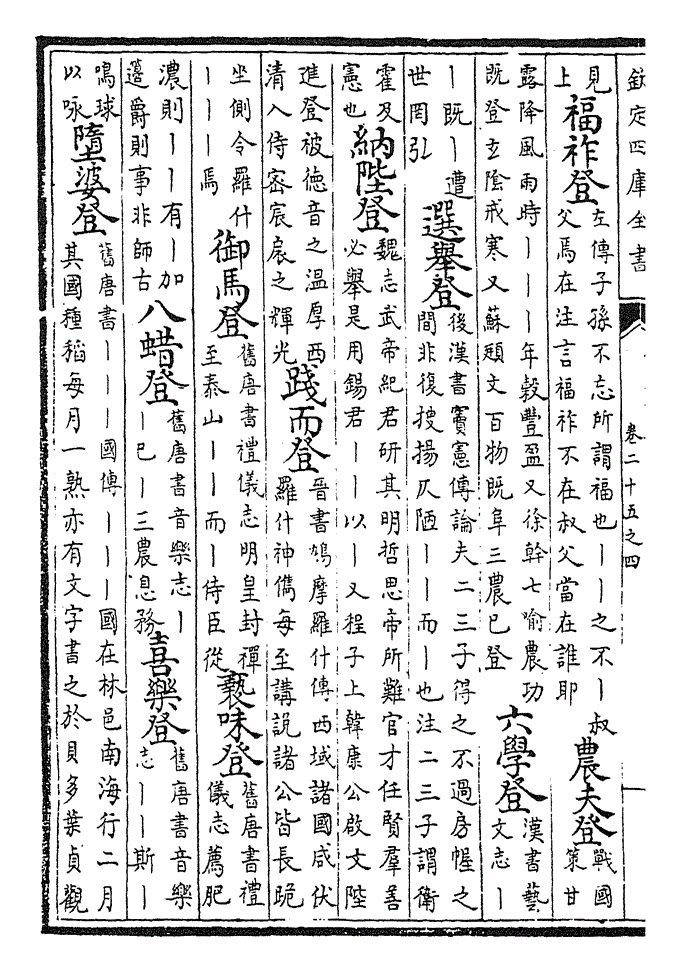 欽定四庫全書 卷二十五之四
見
上
福祚登
左傳子孫不忘所謂福也丨丨之不丨叔
父焉在注言福祚不在叔父當在誰耶
農夫登
戰國
策甘
露降風雨時丨丨丨年穀豐盈又徐幹七喻農功
既登玄陰戒寒又蘇頲文百物既阜三農已登
六學登
漢書藝
文志丨
丨既丨遭
世罔弘
選舉登
後漢書竇憲傳論夫二三子得之不過房幄之
間非復搜揚仄陋丨丨而丨也注二三子謂衛
霍及
憲也
納陛登
魏志武帝紀君研其明哲思帝所難官才任賢羣善
必舉是用錫君丨丨以丨又程子上韓康公啟文陛
進登被德音之温厚西
清入侍密宸扆之輝光
踐而登
晉書鳩摩羅什傳西域諸國咸伏
羅什神儁每至講説諸公皆長跪
坐側令羅什
丨丨丨焉
御馬登
舊唐書禮儀志明皇封禪
至泰山丨丨而丨侍臣從
褻味登
舊唐書禮
儀志薦肥
濃則丨丨有丨加
籩爵則事非師古
八蜡登
舊唐書音樂志丨
丨已丨三農息務
喜樂登
舊唐書音樂
志丨丨斯丨
鳴球
以咏
墮婆登
舊唐書丨丨丨國傳丨丨丨國在林邑南海行二月
其國種稻每月一熟亦有文字書之於貝多葉貞觀